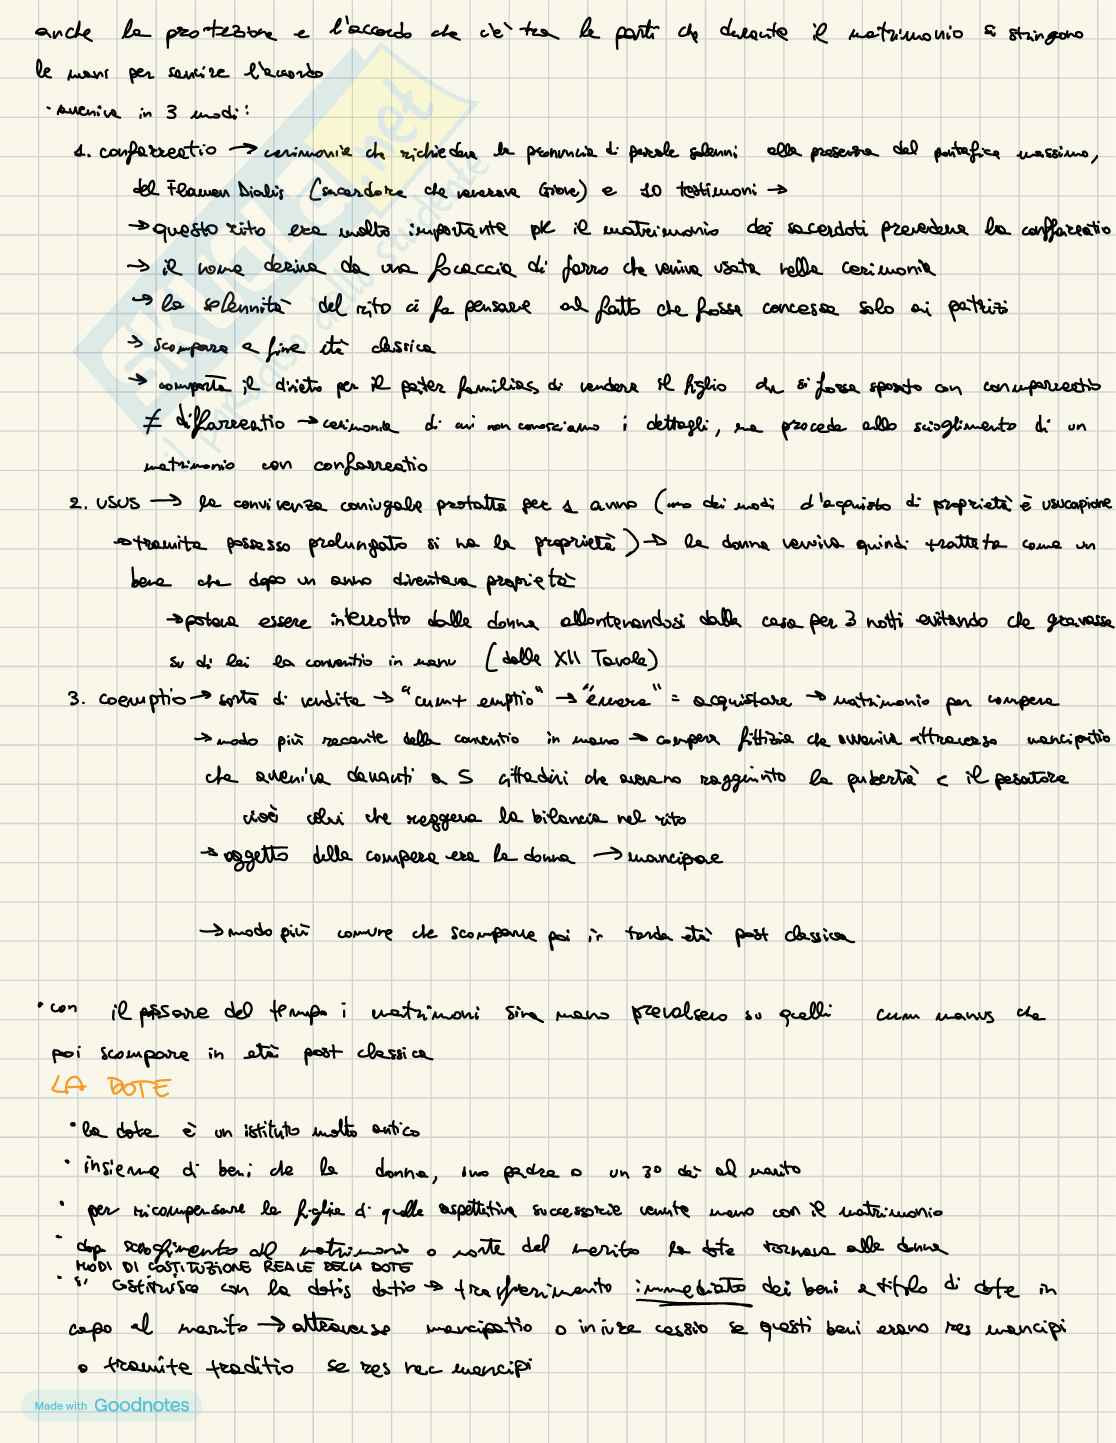 anche la protezione e l'accordo che c'è tra le parti che durante il matrimonio si stringono
le mani per sancire l'accordo
· avveniva in 3 modi:
1. confarreatio → cerimonia che richiedeva la pronuncia di parole solenni alla presenza del pontefice massimo,
del Flamen Dialis (sacerdote che venerava Giove) e 10 testimoni →
→ questo rito era molto importante pk il matrimonio dei sacerdoti prevedeva la conffareatio
→ il nome deriva da una focaccia di farro che veniva usata nella cerimonia
→ la solennità del rito ci fa pensare al fatto che fosse concessa solo ai patrizi
→ scompare a fine età classica
→ comporta il divieto per il pater familias di vendere il figlio che si fosse sposato con
≠ diffarreatio → cerimonia di cui non conosciamo i dettagli, ma procede allo scioglimento di un
matrimonio con confarreatio
2. USUS → la convivenza coniugale protratta per 1 anno (uno dei modi d'acquisto di proprietà è usucapione
→ tramite possesso prolungato si ha la proprietà) → la donna veniva quindi trattata come un
bene che dopo un anno diventava proprietà
→ poteva essere interrotto dalla donna allontanandosi dalla casa per 3 notti evitando che gravasse
su di lei la conventio in manu (dalle XII Tavole)
3. coemptio → sorta di vendita → "cum + emptio" → "emere" = acquistare → matrimonio per compera
→ modo più recente della conventio in mano → compera fittizia che avveniva attraverso mancipatio
che avveniva davanti a 5 cittadini che avevano raggiunto la pubertà e il pesatore
cioè colui che reggeva la bilancia nel rito
→ oggetto della compera era la donna → mancipae
→ modo più comune che scomparve poi in tarda età post classica
· con il passare del tempo i matrimoni sine mano prevalsero su quelli cum manus che
poi scompare in età post classica
LA DOTE
· la dote è un istituto molto antico
· insieme di beni che la donna, suo padre o un 3° dà al marito
· per ricompensare la figlia di quelle aspettative successorie venute meno con il matrimonio
· dopo scioglimento del matrimonio o morte del marito la dote tornava alla donna
MODI DI COSTITUZIONE REALE DELLA DOTE
· si costituisce con la dotis datio → trasferimento immediato dei beni a titolo di dote in
capo al marito → attraverso mancipatio o in iure cessio se questi beni erano res mancipi
o tramite traditio se res nec mancipi
Made with Goodnotes
SKUOLA.net